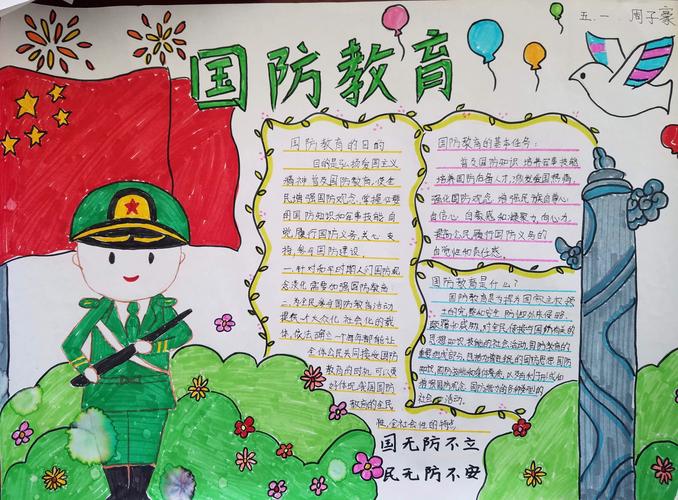 五.一 周子豪
国防教育
国防教育的目的
目的是弘扬爱国主义
精神普及国防教育,使全
民增强国防观念,掌握必要
的国防知识和军事技能,自
觉履行国防义务,关心支
持,参与国防建设。
一.针对和平时期人们国防观
念淡化需要加强国防教育;
二.为全民参与国防教育活动
提供一个大众化,社会化的载
体,依法确立一个每年都能让
全体公民共同接受国防
教育的时机,可以更
好体现我国国防
教育的全民
性,全社会性的特点
国防教育的基本任务:
普及国防知识,培养军事技能
培养国防后备人才,激发爱国热情
强化国防观念,增强民族自尊心
自信心,自豪感和凝聚力,向心力,
提高公民履行国防义务的
自觉性和责任感。
国防教育是什么?
国防教育是为捍卫国家主权,领
土的完整和安全,防御外来侵略,
颠覆和威胁,对全民传授与国防有关的
思想知识,技能的社会活动,国防教育的
社会活动。
国无防不立
民无防不安